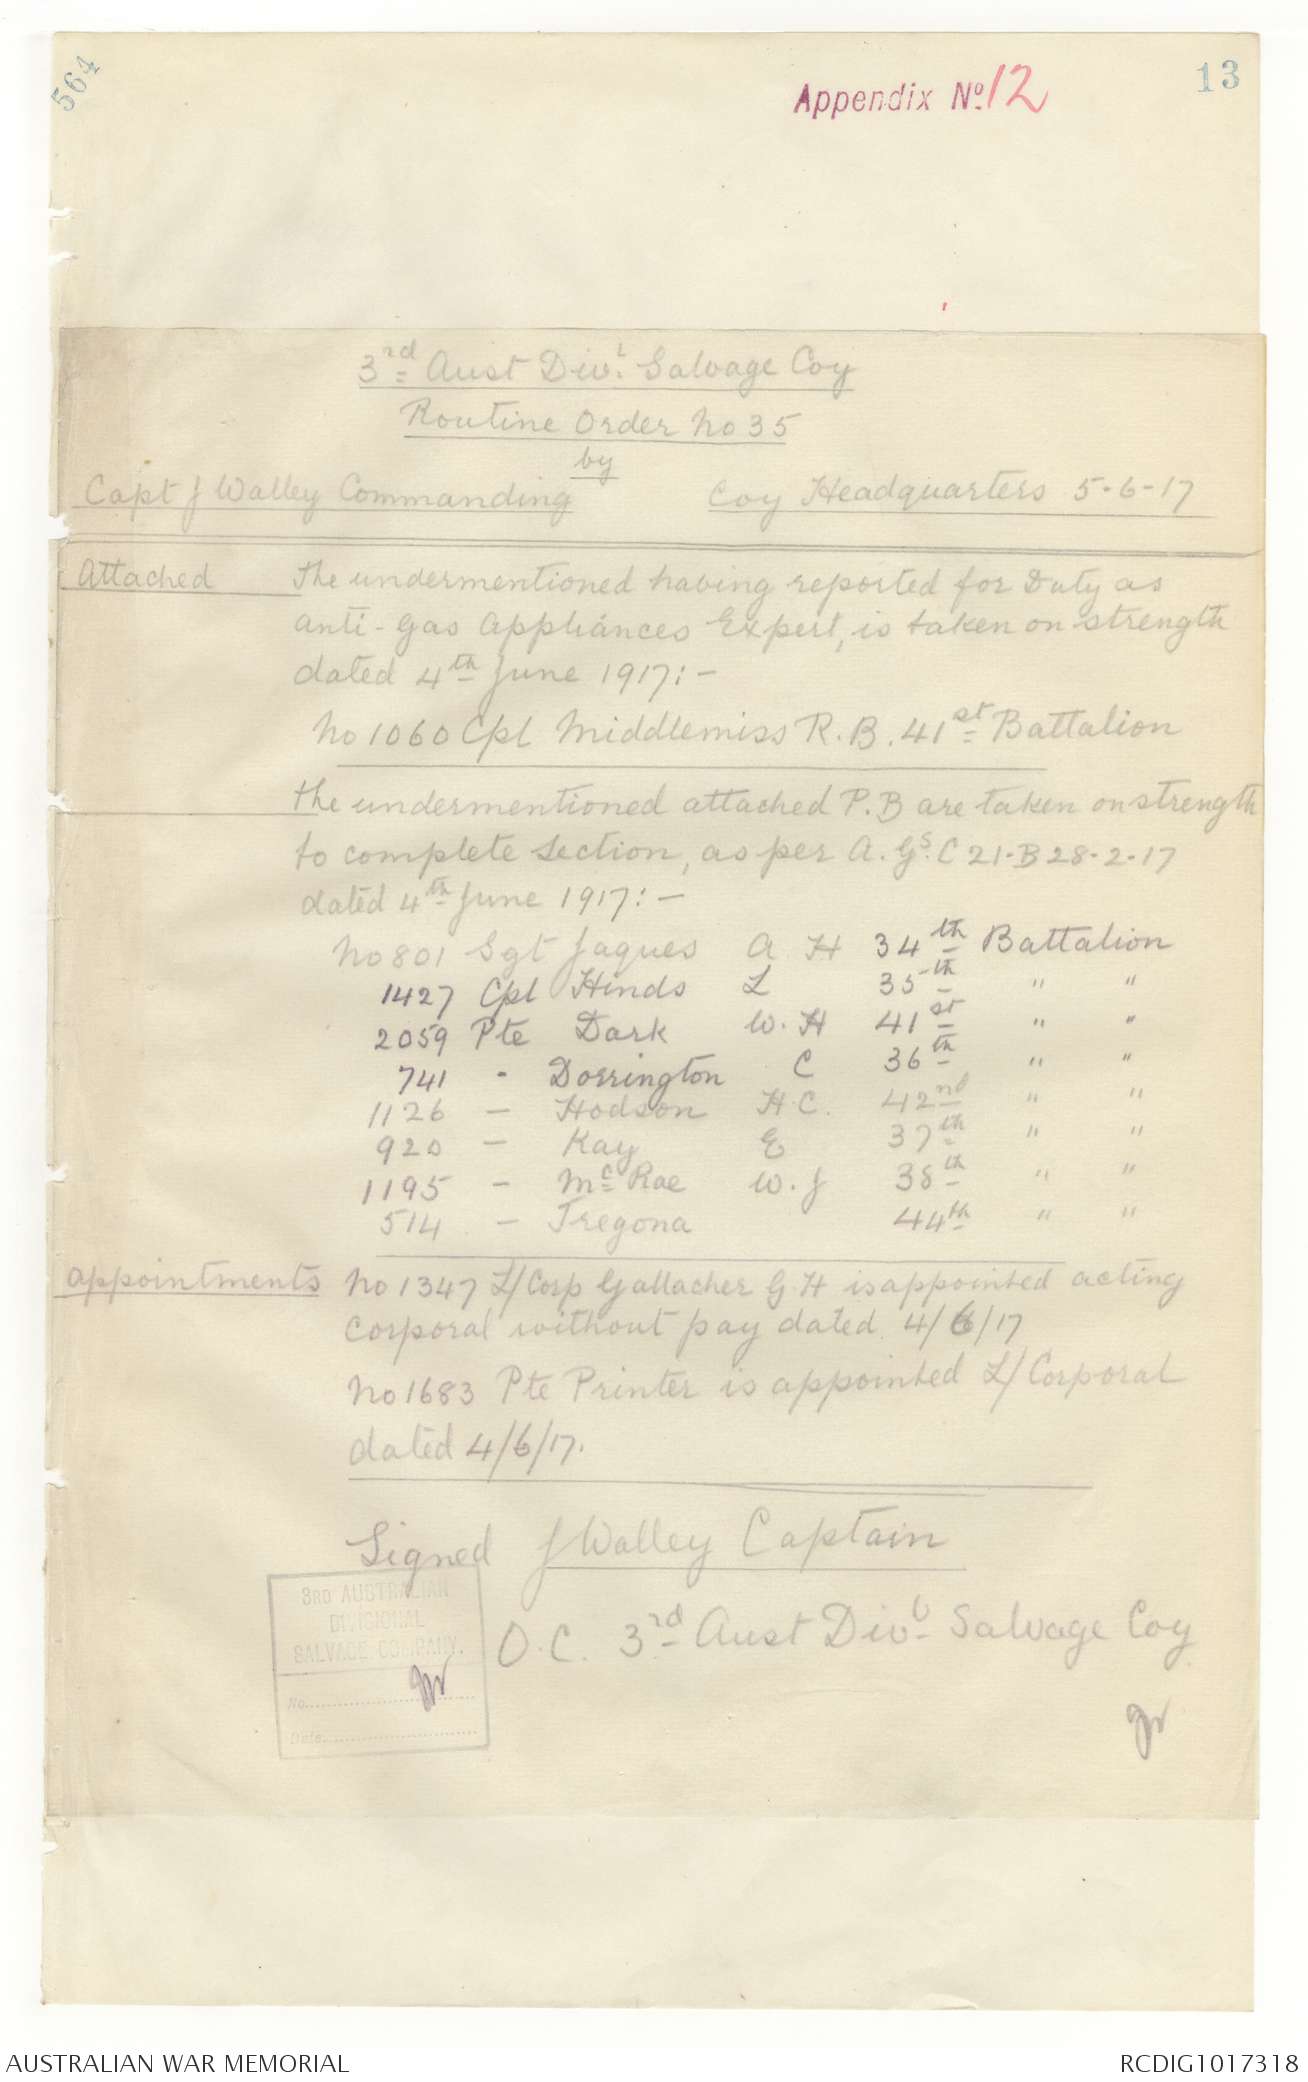 564
Appendix No. 12
13
3rd Aust Divl. Salvage Coy
Routine Order No 35
by
Capt J Walley Commanding Coy Headquarters 5-6-17
Attached The undermentioned having reported for Duty as
anti-Gas Appliances Expert, is taken on strength
dated 4th June 1917:-
No 1060 Cpl Middlemiss R. B. 41st Battalion
The undermentioned attached P.B are taken on strength
to complete section, as per A. Gs. C 21-B 28-2-17
dated 4th June 1917:-
No 801 Sgt Jaques A H 34th Battalion
1427 Cpl Hinds L 35th " "
2059 Pte Dark W. H 41st " "
741 - Dorrington C 36th " "
1126 - Hodson H.C. 42nd " "
920 - Kay E 37th " "
1195 - McRae W. J 38th " "
514 - Tregona 44th " "
Appointments No 1347 L/Corp Gallacher G.H is appointed acting
Corporal without pay dated 4/6/17
No 1683 Pte Printer is appointed L/Corporal
dated 4/6/17.
Signed J Walley Captain
O.C. 3rd Aust Divl Salvage Coy
3RD AUSTRALIAN
DIVISIONAL
SALVAGE COMPANY.
No. JW
Date
JW
AUSTRALIAN WAR MEMORIAL RCDIG1017318